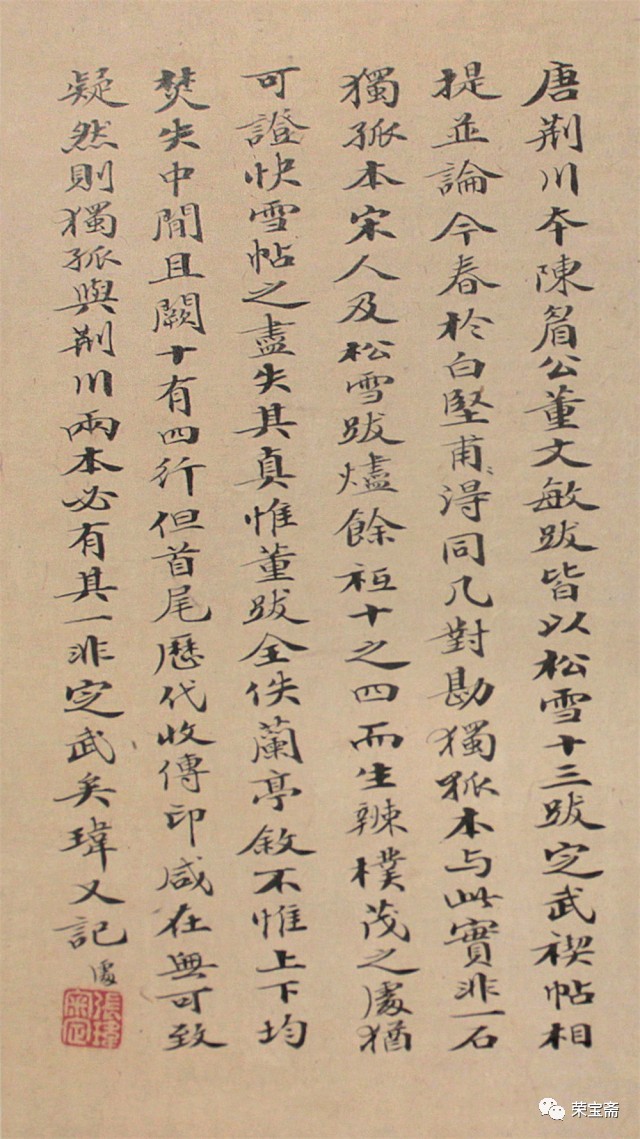 唐荆川本陳眉公董文敏跋皆以松雪十三跋定武禊帖相
提並論今春於白堅甫㝵同几對勘獨孤本与此實非一石
獨孤本宋人及松雪跋燼餘祇十之四而生辣樸茂之處猶
可證快雪帖之盡失其真惟董跋全佚蘭亭敘不惟上下均
焚失中間且闕十有四行但首尾歷代收傳印咸在無可致
疑然則獨孤與荆川兩本必有其一非定武矣瑋又記
處
張瑋
榮宝斋